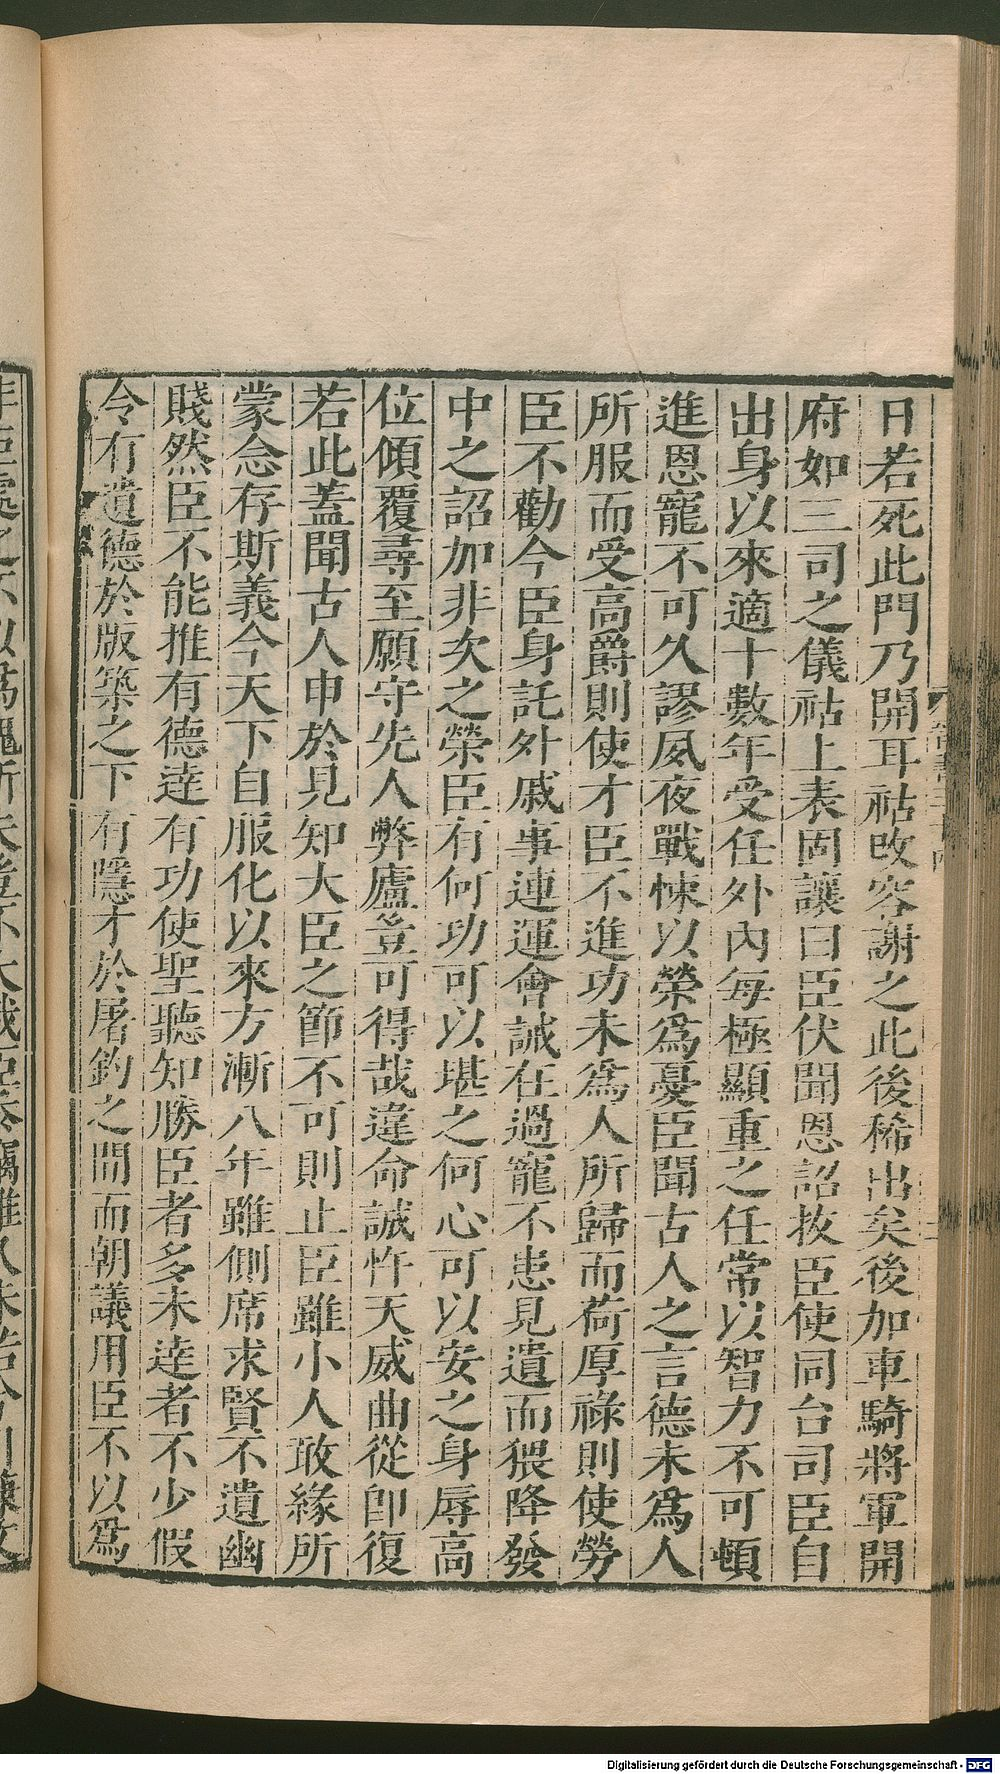 日若死此門乃開耳祜改容謝之此後稀出矣後加車騎將軍開
府如三司之儀祜上表固讓曰臣伏聞恩詔拔臣使同台司臣自
出身以來適十數年受任外內每極顯重之任常以智力不可頓
進恩寵不可久謬夙夜戰悚以榮爲憂臣聞古人之言德未爲人
所服而受高爵則使才臣不進功未爲人所歸而荷厚祿則使勞
臣不勸今臣身託外戚事連運會誡在過寵不患見遺而猥降發
中之詔加非次之榮臣有何功可以堪之何心可以安之身辱高
位傾覆尋至願守先人弊廬豈可得哉違命誠忤天威曲從卽復
若此蓋聞古人申於見知大臣之節不可則止臣雖小人敢緣所
蒙念存斯義今天下自服化以來方漸八年雖側席求賢不遺幽
賤然臣不能推有德達有功使聖聽知勝臣者多未達者不少假
令有遺德於版築之下有隱才於屠釣之間而朝議用臣不以爲
Digitalisierung gefördert durch die Deutsche Forschungsgemeinschaft - DFG